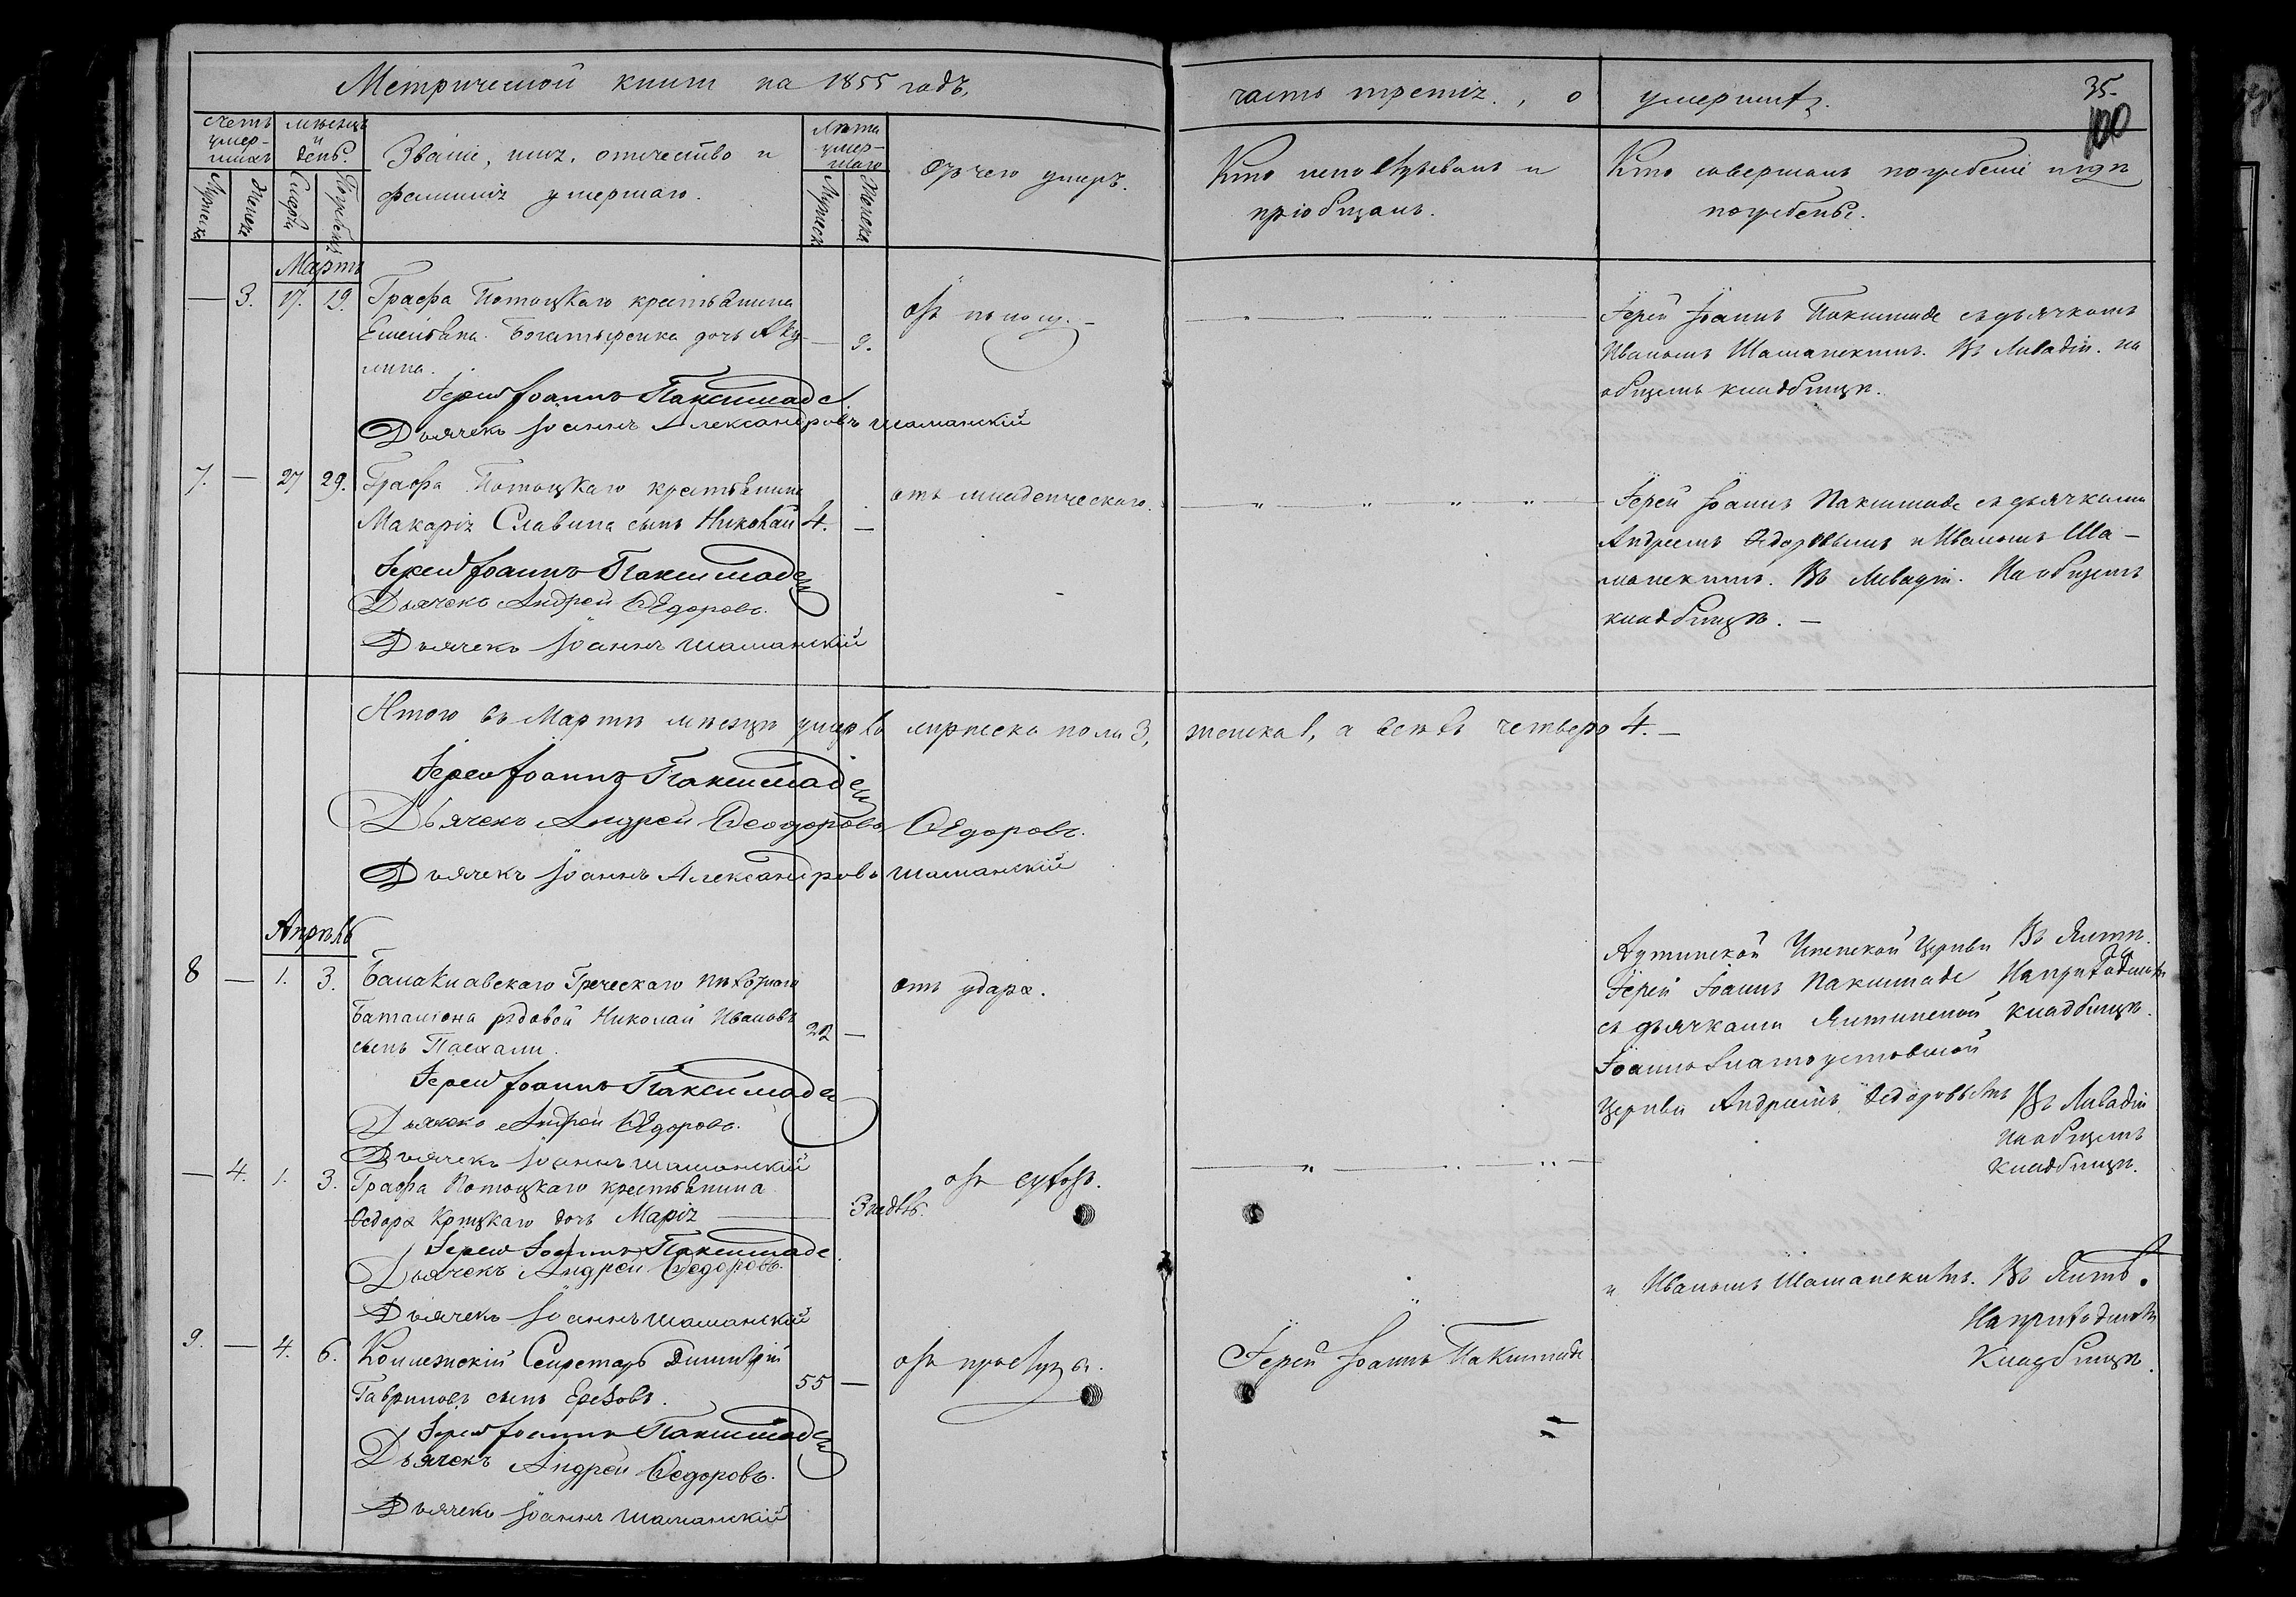 Метрической книги на 1855 годъ,
часть третія, о умершихъ.
35.
100
Счетъ умер-шихъ
Мѣсяцъ и день.
Званіе, имя, отчество и
фамилія умершаго.
Лѣта умер-шаго
Отъ чего умеръ.
Кто исповѣдывалъ и
пріобщалъ.
Кто совершалъ погребеніе и гдѣ
погребены.
Мужеска
Женска
Смерти
Погребенія
Мужеск
Женска
Мартъ
— 3. 17. 19. Графа Потоцкаго крестьянина
Емельяна Богатыренка дочь Аку-
лина. — 9.
Іерей Іоаннъ Паксимаде
Дьячекъ Іоаннъ Александровъ Шаманскій
Іерей Іоаннъ Паксимаде съ дьячкомъ
Иваномъ Шаманскимъ. Въ Ливадіи. на
общемъ кладбищѣ.
7. — 27 29. Графа Потоцкаго крестьянина
Макарія Славина сынъ Николай 4. —
отъ младенческаго.
Іерей Іоаннъ Паксимаде
Дьячекъ Андрей Ѳедоровъ.
Дьячекъ Іоаннъ Шаманскій
Іерей Іоаннъ Паксимаде съ дьячками
Андреемъ Ѳедоровымъ и Иваномъ Ша-
манскимъ. Въ Ливадіи. На общемъ
кладбищѣ. —
Итого въ Мартѣ мѣсяцѣ умерло мужеска пола 3, женска 1, а всѣхъ четверо 4. —
Іерей Іоаннъ Паксимаде
Дьячекъ Андрей Ѳеодоровъ Ѳедоровъ.
Дьячекъ Іоаннъ Александровъ Шаманскій
Апрѣль
8 — 1. 3. Балаклавскаго Греческаго пѣхотнаго
Баталіона рядовой Николай Ивановъ
сынъ Пасхали. 22 —
отъ удара.
Іерей Іоаннъ Паксимаде
Дьячекъ Андрей Ѳедоровъ.
Дьячекъ Іоаннъ Шаманскій
Аутинской Успенской Церкви
Іерей Іоаннъ Паксимаде
съ дьячками Ялтинской
Іоанно Златоустовской
Церкви Андреемъ Ѳедоровымъ
Въ Ялтѣ.
На приходскомъ
кладбищѣ.
— 4. 1. 3. Графа Потоцкаго крестьянина
Ѳедора дочь Марія — 3 недѣль.
Іерей Іоаннъ Паксимаде.
Дьячекъ Андрей Ѳедоровъ.
Дьячекъ Іоаннъ Шаманскій
Въ Ливадіи
На общемъ
кладбищѣ.
и Иваномъ Шаманскимъ.
9. — 4. 6. Коллежскій Секретарь Димитрій
Гавриловъ сынъ 55 —
отъ простуды.
Іерей Іоаннъ Паксимаде
Іерей Іоаннъ Паксимаде
Дьячекъ Андрей Ѳедоровъ.
Дьячекъ Іоаннъ Шаманскій
Въ Ялтѣ.
На приходскомъ
Кладбищѣ.